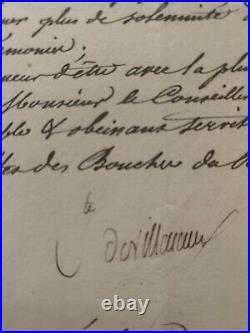 plus de solemnité
émonier;
neur d'être avec la plu
Monsieur le Conseiller
ble & obéissant servit
des Bouches du
Cte deVillaneuf